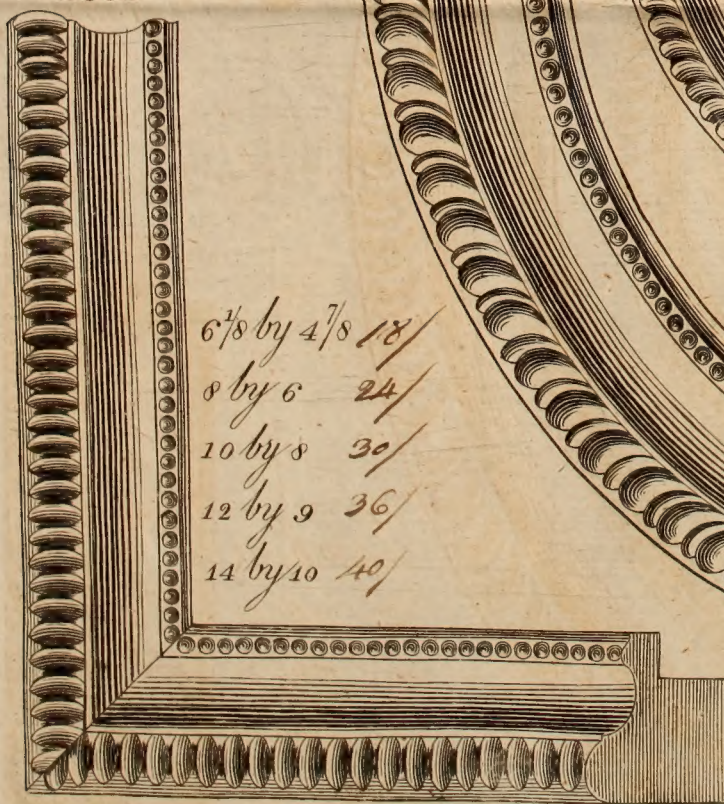 6 1/8 by 4 7/8 18/
8 by 6 24/
10 by 8 30/
12 by 9 36/
14 by 10 40/